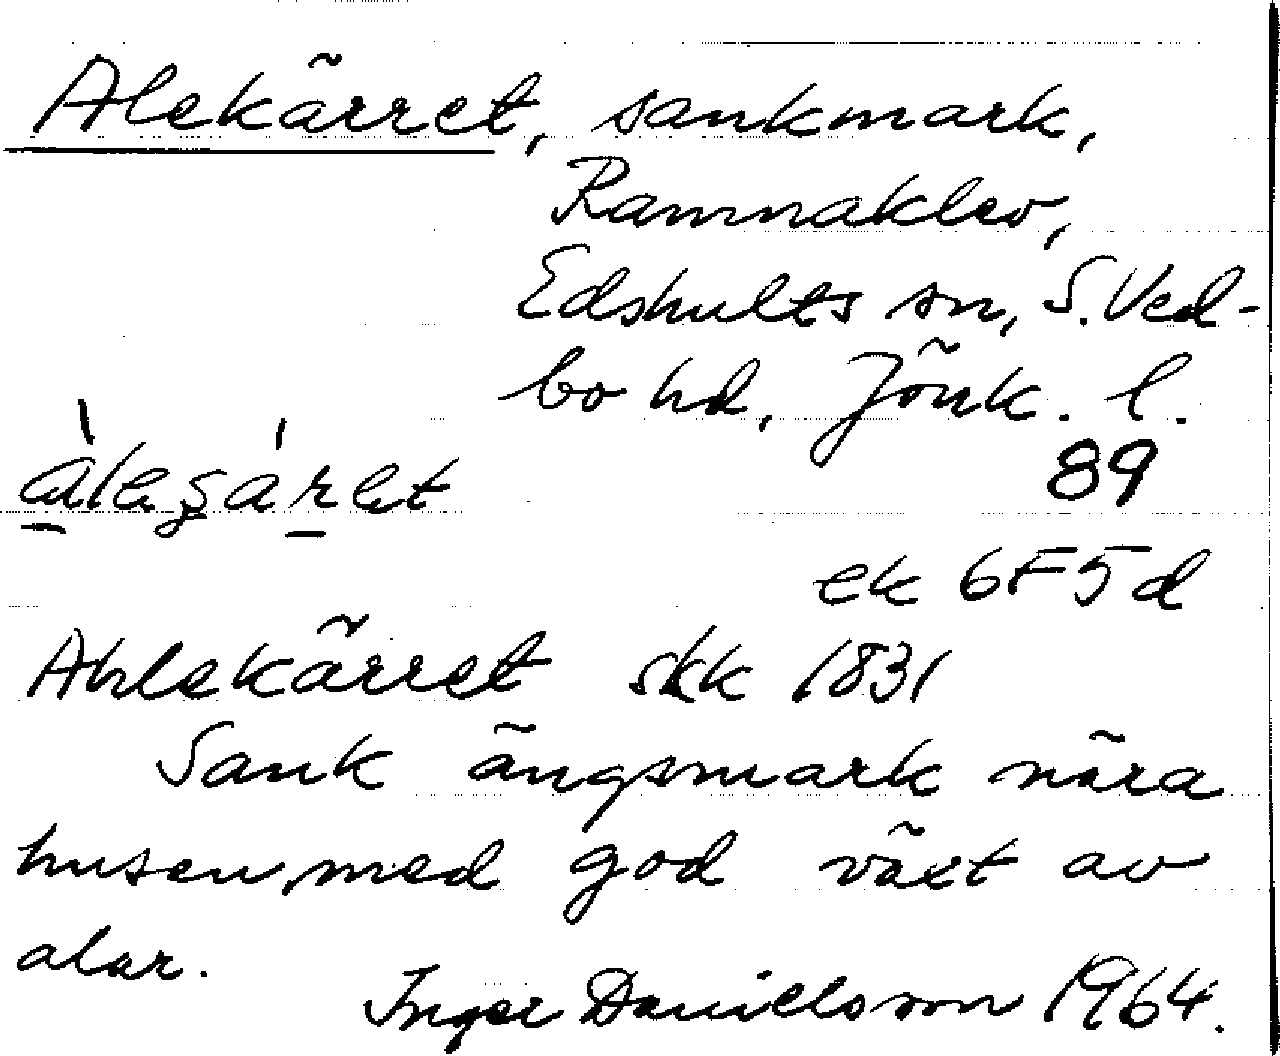 Alekärret, sankmark,
Ramnaklev,
Edshults sn, S. Ved-
bo hd, Jönk. l.
89
ek 6F5d
Ahlekärret skk 1831
Sank ängsmark nära
husen, med god växt av
alar.
Inger Danielsson 1964.